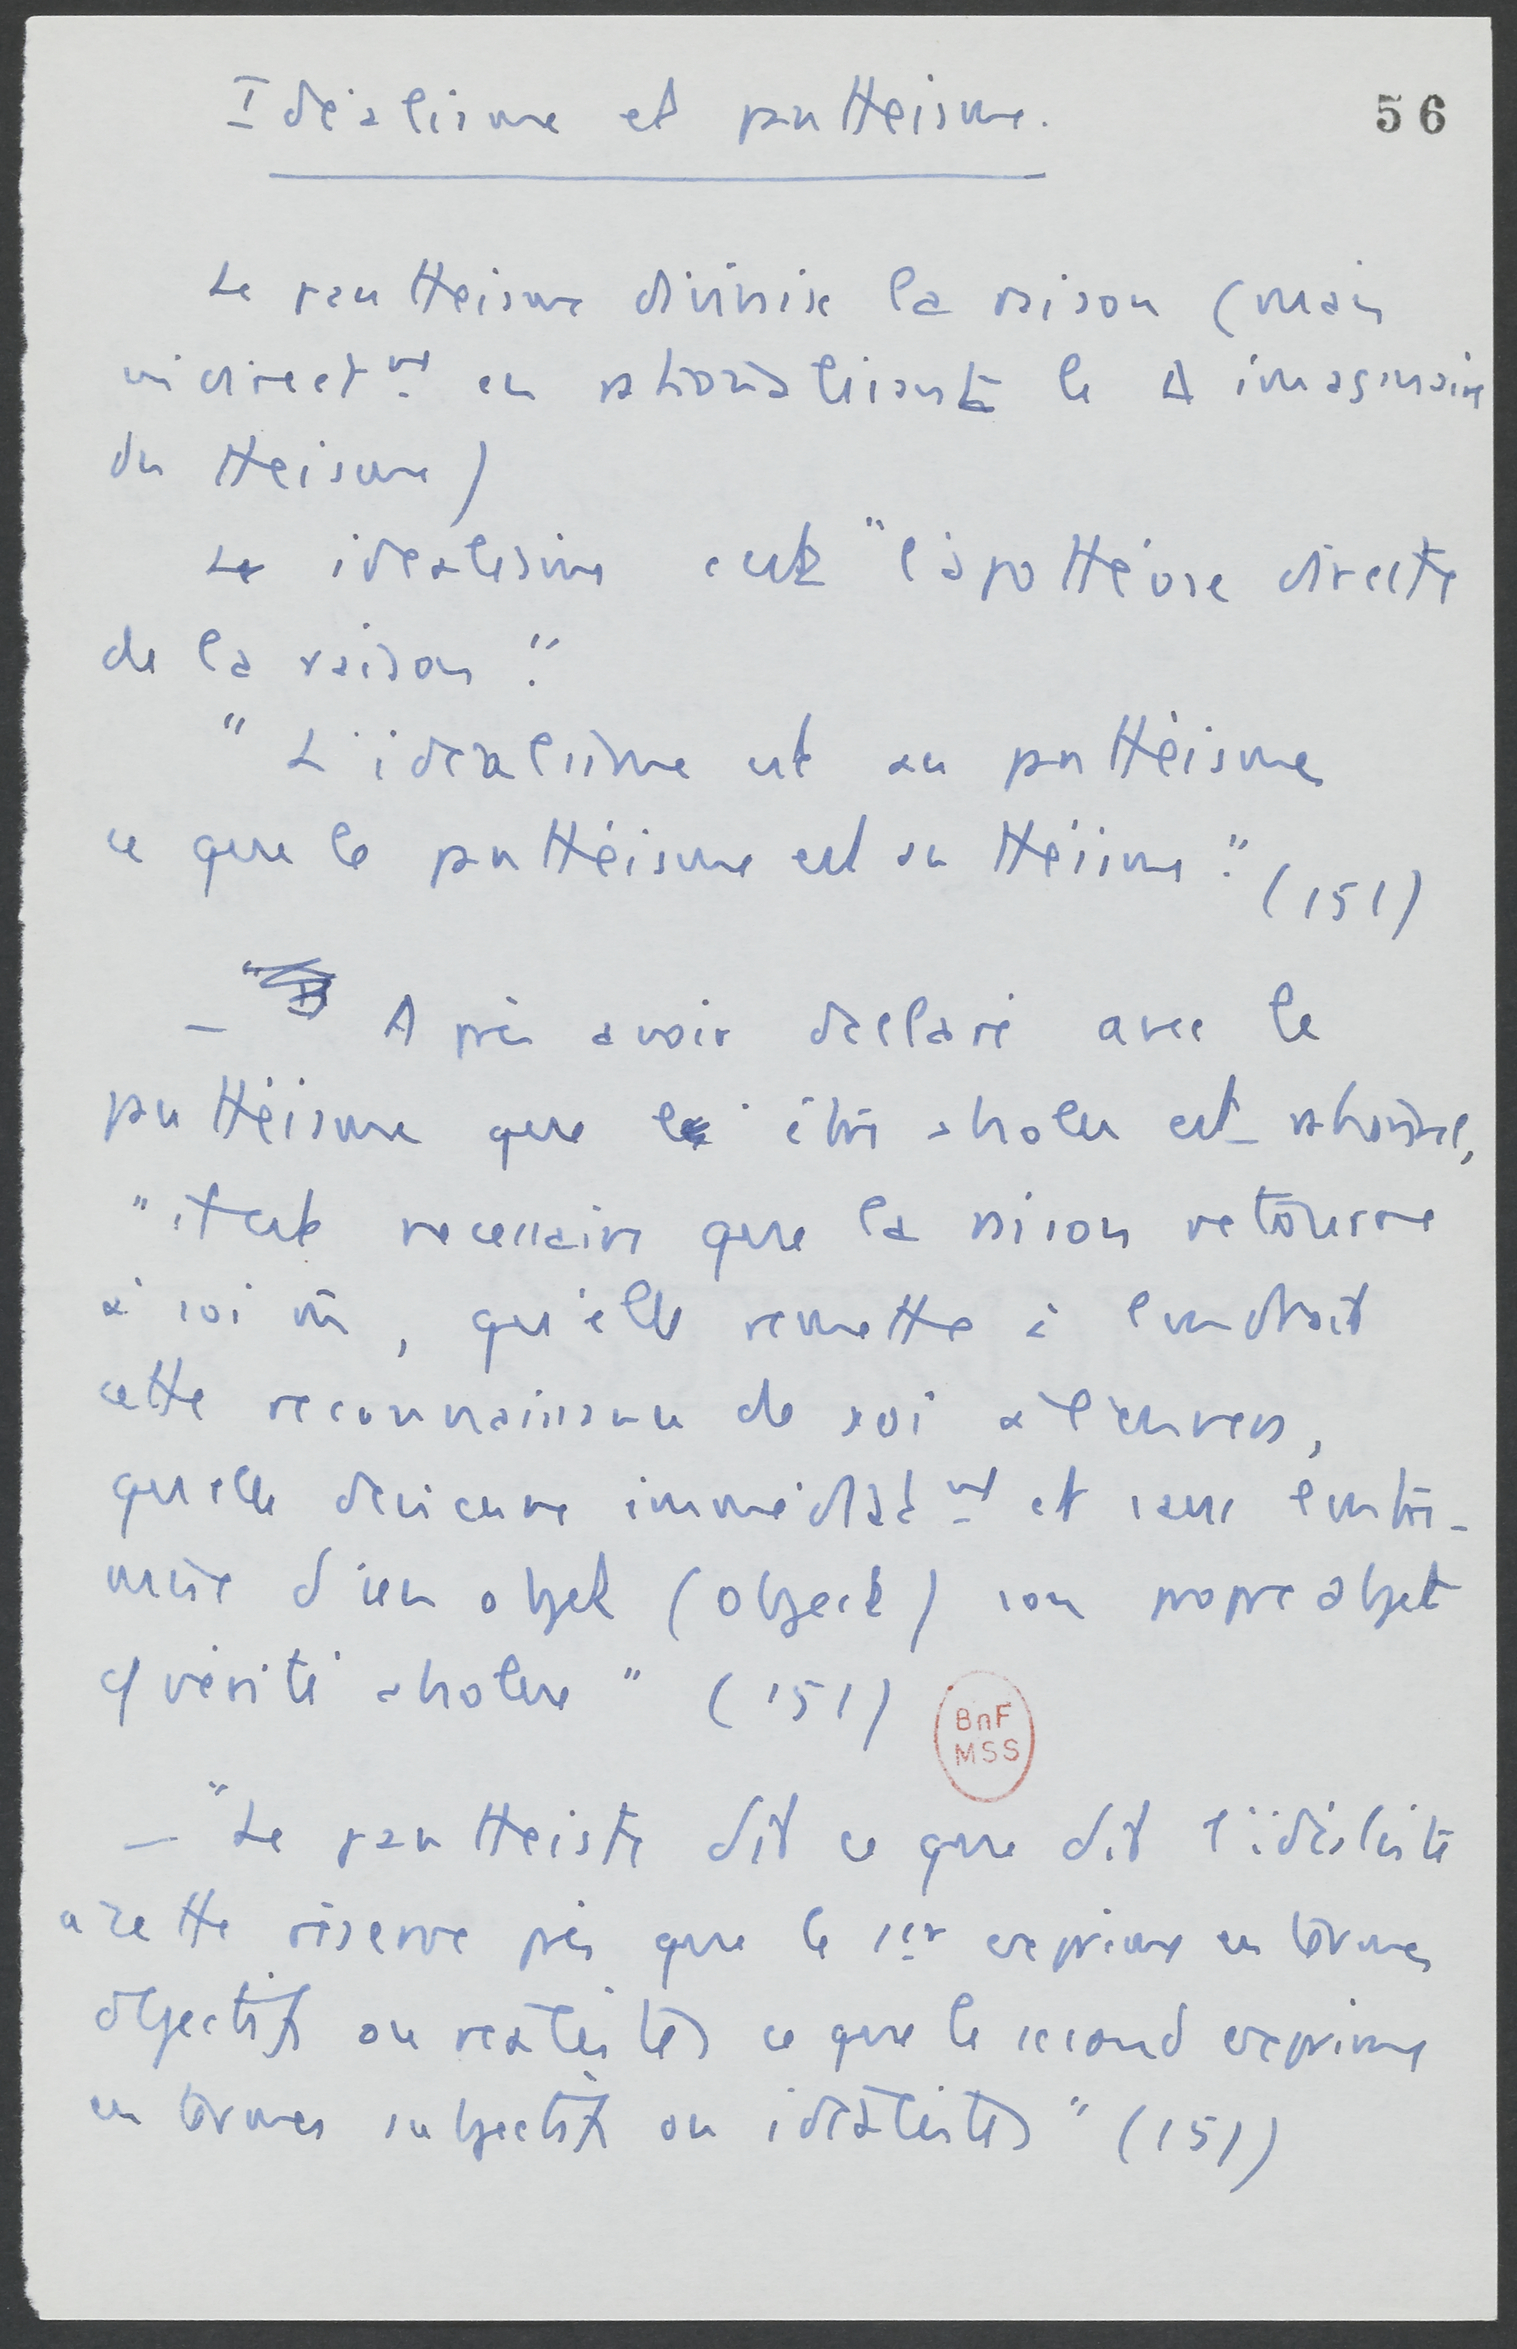 Idéalisme et pantheisme.
56
Le pantheisme divinise la raison (mais
indirectmt en rationalisant le Δ imaginaire
du theisme)
Le idealisme est "l'apothéose directe
de la raison."
"L'idealisme est au panthéisme
ce que le panthéisme est au théisme." (151)
— " Après avoir declaré avec le
panthéisme que l' être absolu est rationnel,
"il est necessaire que la raison retourne
à soi m, qu'elle remette à l'endroit
cette reconnaissance de soi à l'envers,
qu'elle devienne immédiatmt et sans l'entre-
mise d'un objet (Object) son propre objet
et vérité absolue" (151)
BnF
MSS
— "Le pantheiste dit ce que dit l'idéaliste
à cette réserve près que le 1er exprime en termes
objectifs ou realistes ce que le second exprime
en termes subjectifs ou idéalistes" (151)